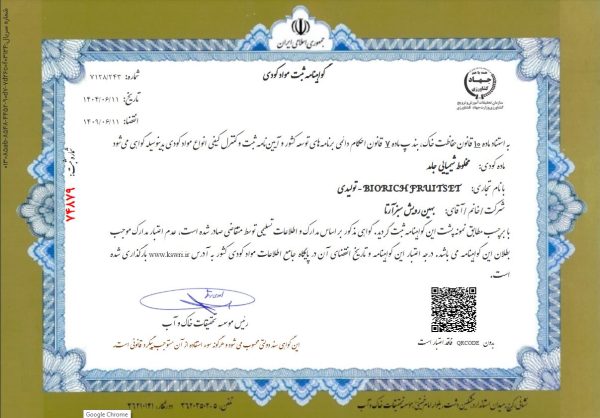 جمهوری اسلامی ایران
گواهینامه ثبت مواد کودی
شماره: ۷۱۲۸/۲۴۳
تاریخ: ۱۴۰۴/۰۶/۱۱
انقضاء: ۱۴۰۹/۰۶/۱۱
جهاد
کشاورزی
سازمان تحقیقات، آموزش و ترویج کشاورزی
شماره ثبت: ۷۴۸۷۹
به استناد ماده ۱۰ قانون حفاظت خاک، بند پ ماده ۷ قانون احکام دائمی برنامه‌های توسعه کشور و آیین نامه ثبت و کنترل کیفی انواع مواد کودی بدینوسیله گواهی می‌شود
ماده کودی: مخلوط شیمیایی جامد
با نام تجاری: BIORICH FRUITSET - تولیدی
شرکت / خانم / آقای: بهین رویش سبز آرتا
با برچسب مطابق نمونه پشت این گواهینامه ثبت گردید. گواهی مذکور بر اساس مدارک و اطلاعات تسلیمی توسط متقاضی صادر شده است، عدم اعتبار مدارک موجب
بطلان این گواهینامه می باشد. درجه اعتبار این گواهینامه و تاریخ انقضای آن در پایگاه جامع اطلاعات مواد کودی کشور به آدرس www.kswri.ir بارگذاری شده
است.
رئیس موسسه تحقیقات خاک و آب
بدون QRCODE فاقد اعتبار است
این گواهی سند دولتی محسوب می شود و هرگونه سوء استفاده از آن مستوجب پیگرد قانونی است.
Google Chrome